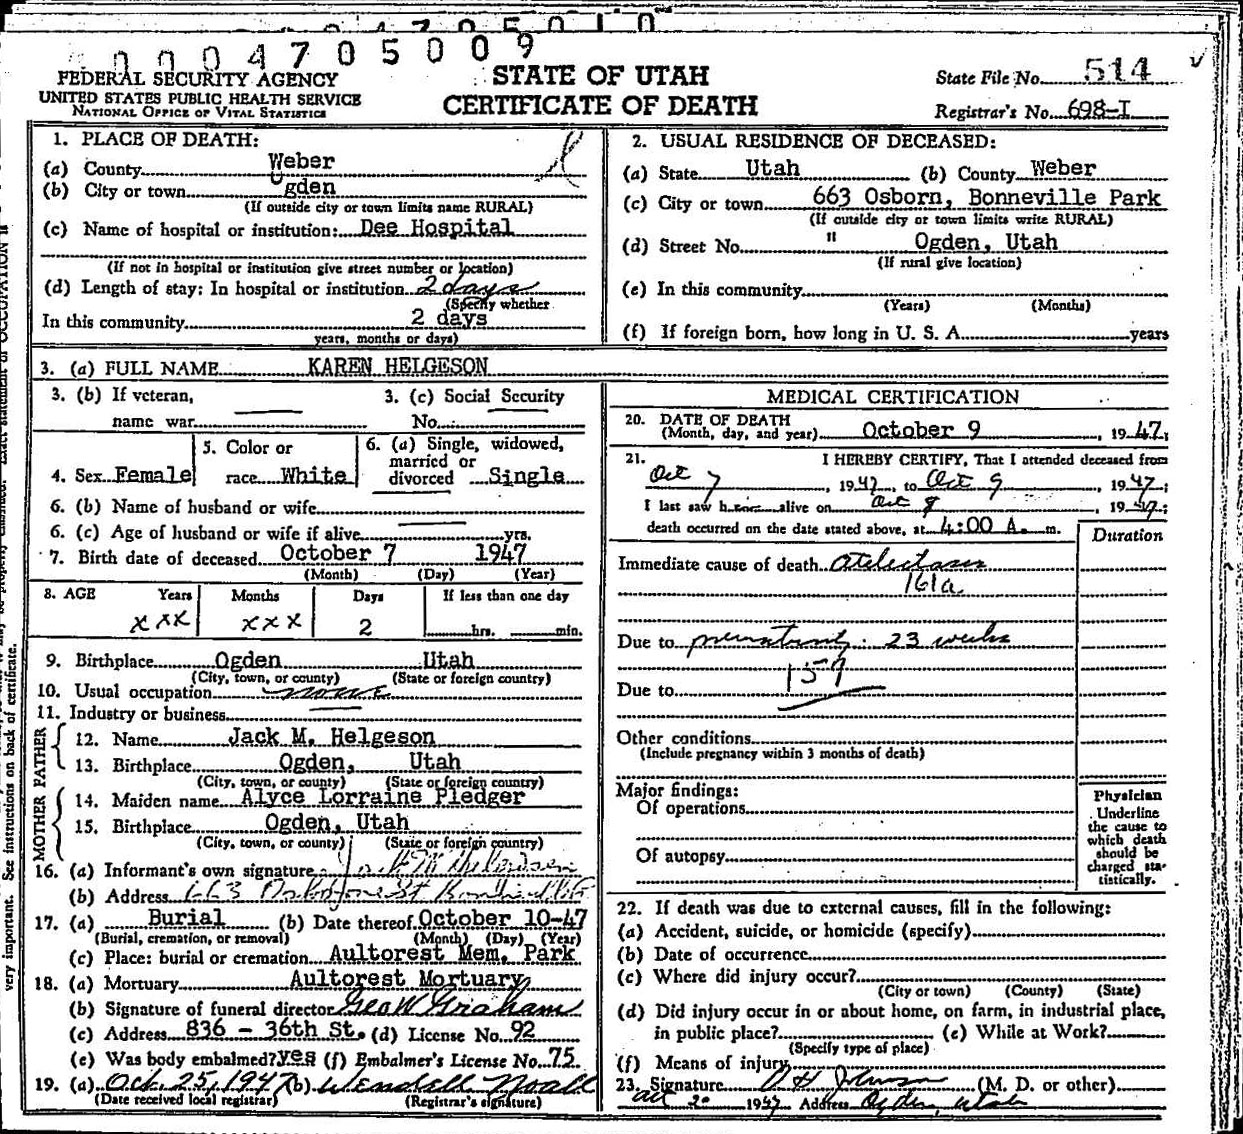 0004705009
FEDERAL SECURITY AGENCY
UNITED STATES PUBLIC HEALTH SERVICE
NATIONAL OFFICE OF VITAL STATISTICS
STATE OF UTAH
CERTIFICATE OF DEATH
State File No. 514
Registrar's No. 698-I
1. PLACE OF DEATH:
(a) County Weber
(b) City or town Ogden
(If outside city or town limits name RURAL)
(c) Name of hospital or institution: Dee Hospital
(If not in hospital or institution give street number or location)
(d) Length of stay: In hospital or institution 2 days
(Specify whether
In this community 2 days
years, months or days)
2. USUAL RESIDENCE OF DECEASED:
(a) State Utah (b) County Weber
(c) City or town 663 Osborn, Bonneville Park
(If outside city or town limits write RURAL)
(d) Street No. " Ogden, Utah
(If rural give location)
(e) In this community
(Years) (Months)
(f) If foreign born, how long in U. S. A. years
3. (a) FULL NAME KAREN HELGESON
3. (b) If veteran,
name war
3. (c) Social Security
No.
4. Sex Female
5. Color or
race White
6. (a) Single, widowed,
married or
divorced Single
6. (b) Name of husband or wife
6. (c) Age of husband or wife if alive yrs.
7. Birth date of deceased October 7 1947
(Month) (Day) (Year)
8. AGE Years Months Days If less than one day
xxx xxx 2 hrs. min.
9. Birthplace Ogden Utah
(City, town, or county) (State or foreign country)
10. Usual occupation none
11. Industry or business
FATHER
12. Name Jack M. Helgeson
13. Birthplace Ogden, Utah
(City, town, or county) (State or foreign country)
MOTHER
14. Maiden name Alyce Lorraine Pledger
15. Birthplace Ogden, Utah
(City, town, or county) (State or foreign country)
16. (a) Informant's own signature
(b) Address 663
17. (a) Burial (b) Date thereof October 10-47
(Burial, cremation, or removal) (Month) (Day) (Year)
(c) Place: burial or cremation Aultorest Mem. Park
18. (a) Mortuary Aultorest Mortuary
(b) Signature of funeral director Geo W Graham
(c) Address 836 - 36th St. (d) License No. 92
(e) Was body embalmed? yes (f) Embalmer's License No. 75
19. (a) Oct. 25, 1947 (b) Wendell Noall
(Date received local registrar) (Registrar's signature)
MEDICAL CERTIFICATION
20. DATE OF DEATH
(Month, day, and year) October 9, 1947;
21. I HEREBY CERTIFY, That I attended deceased from
Oct 7, 1947, to Oct 9, 1947;
I last saw h alive on Oct 9, 1947;
death occurred on the date stated above, at 4:00 A. m.
Duration
Immediate cause of death atelectasis
161a
Due to prematurity. 23 weeks
159
Due to
Other conditions
(Include pregnancy within 3 months of death)
Major findings:
Of operations
Of autopsy
Physician
Underline
the cause to
which death
should be
charged sta-
tistically.
22. If death was due to external causes, fill in the following:
(a) Accident, suicide, or homicide (specify)
(b) Date of occurrence
(c) Where did injury occur?
(City or town) (County) (State)
(d) Did injury occur in or about home, on farm, in industrial place,
in public place? (e) While at Work?
(Specify type of place)
(f) Means of injury
23. Signature Johnson (M. D. or other)
Oct 20 1947 Address Ogden, Utah
very important. See instructions on back of certificate.